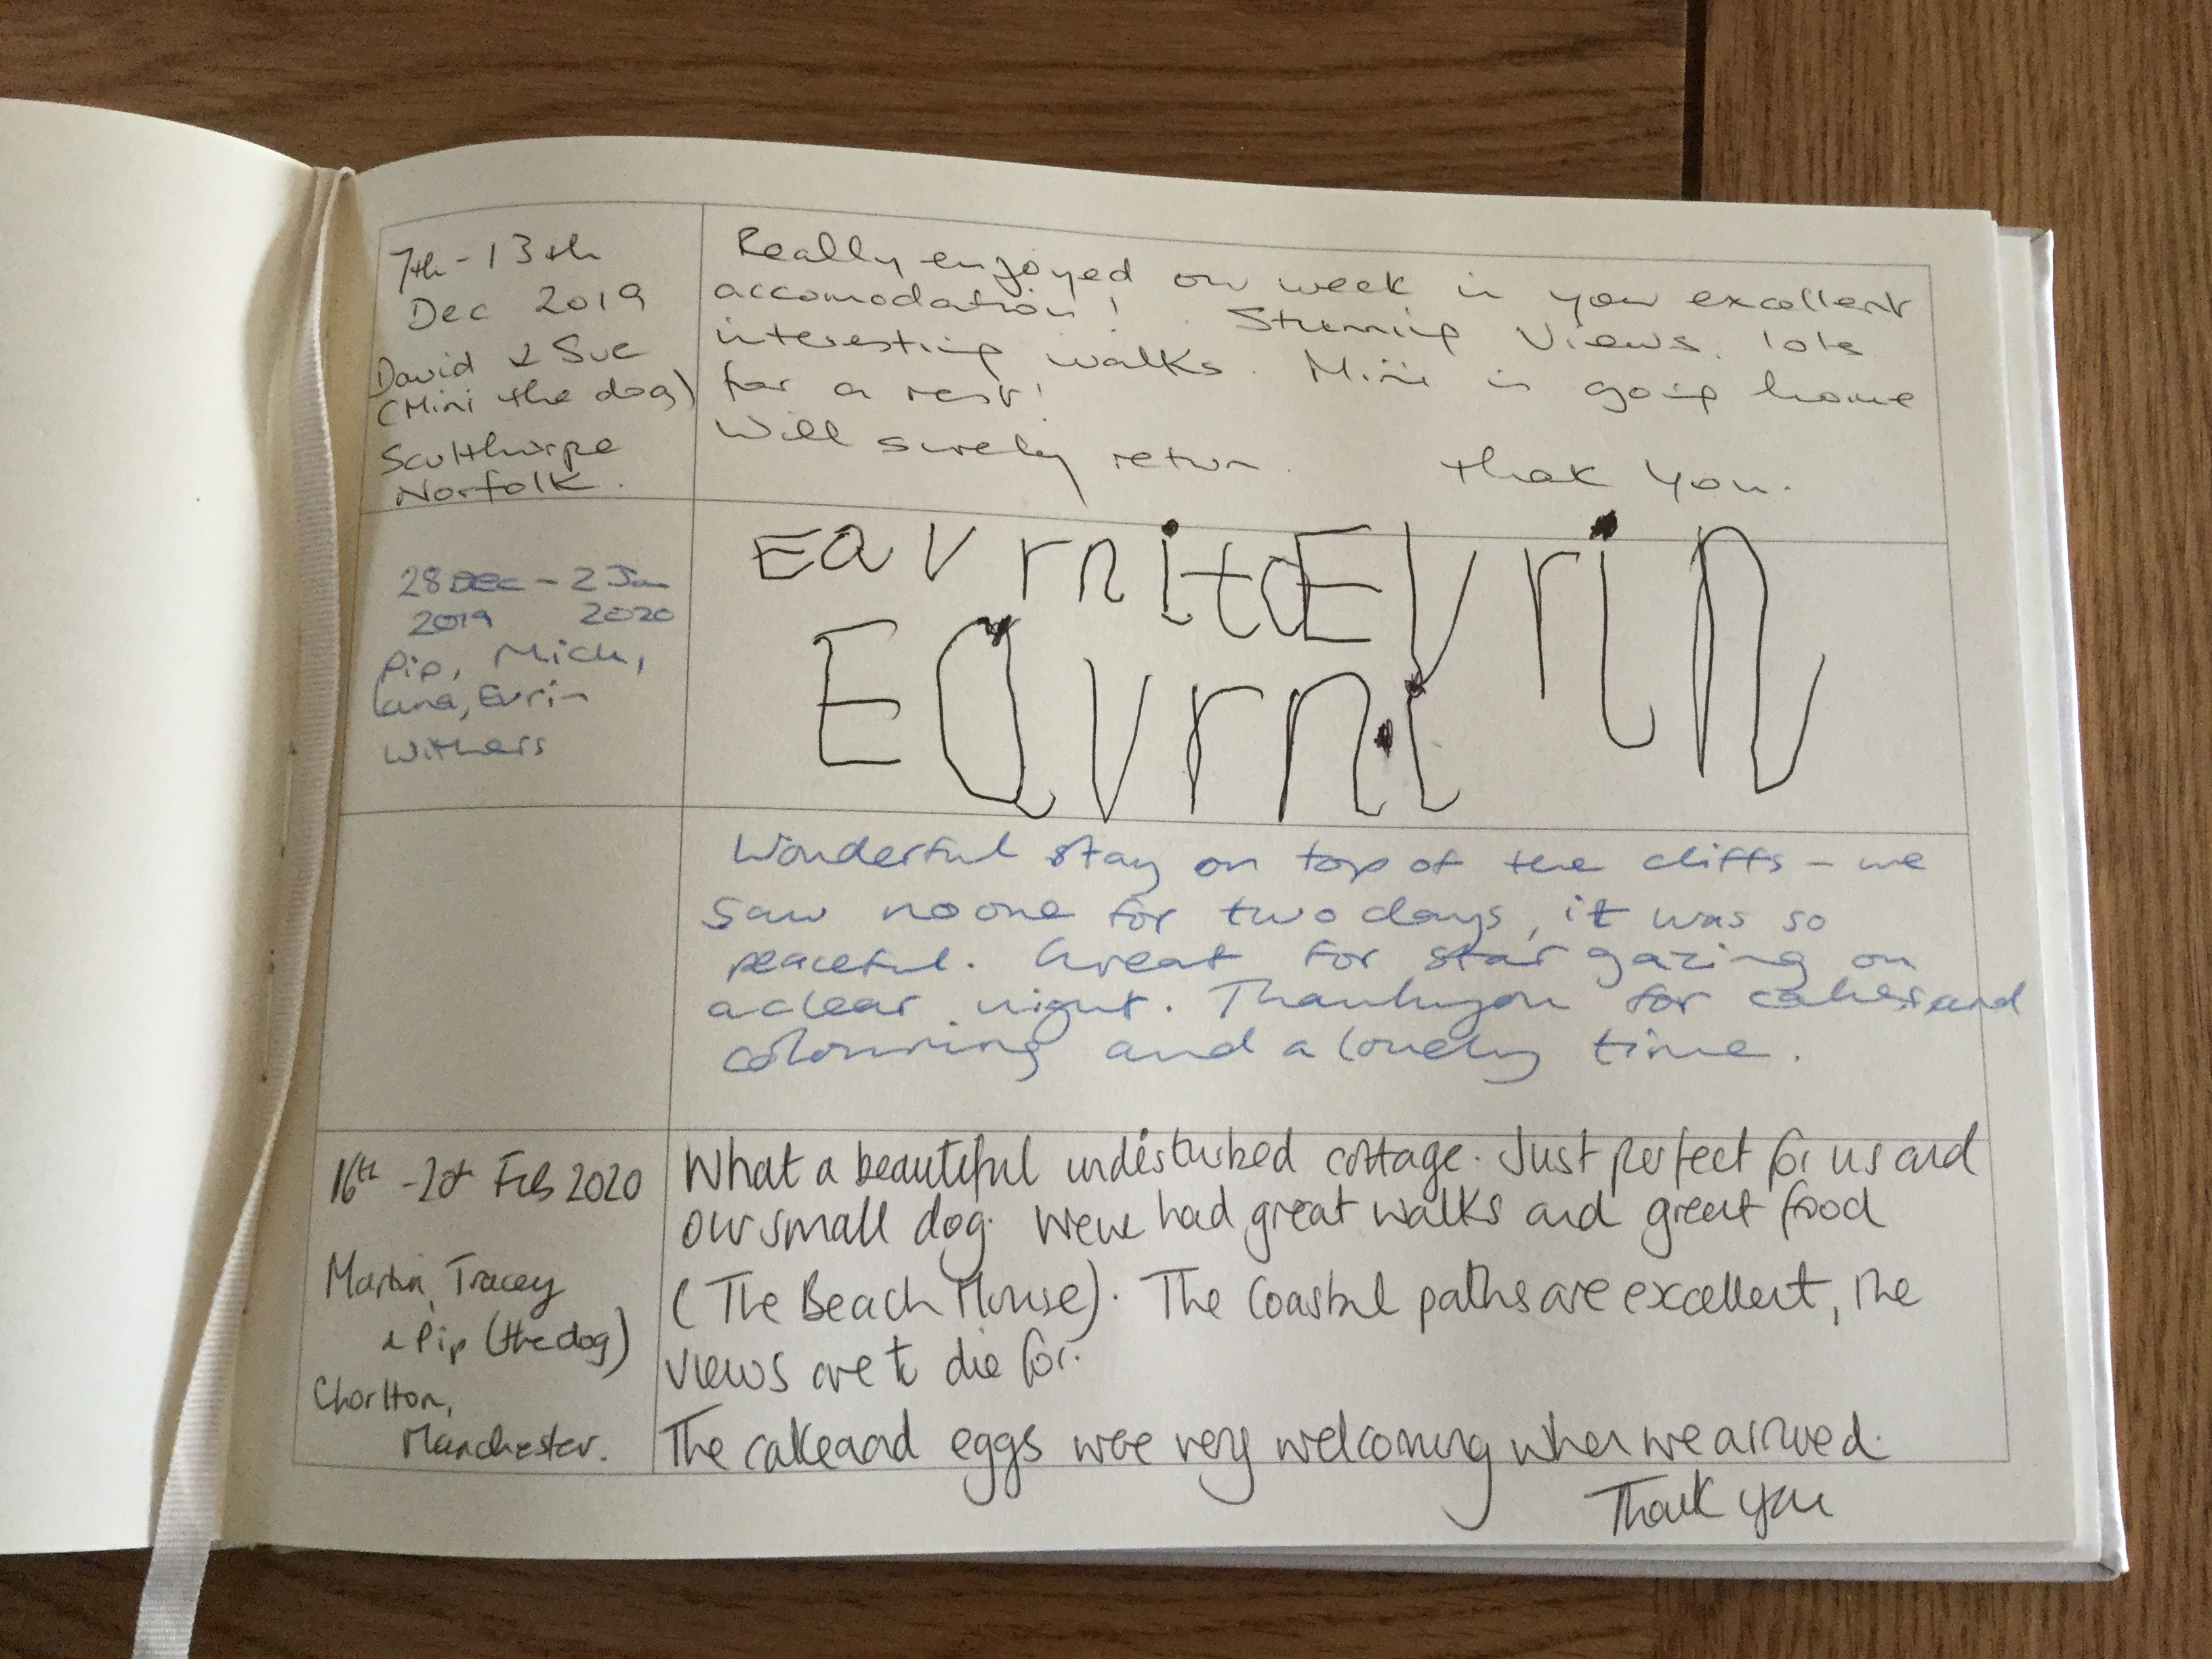 7th - 13th
Dec 2019
David & Sue
(Mini the dog)
Sculthorpe
Norfolk.
Really enjoyed our week in your excellent
accomodation! Stunning Views. lots
interesting walks. Mini is going home
for a rest!
Will surely return. Thank You.
28 DEC - 2 Jan
2019 2020
Pip, Mich,
Lana, Evrin
Withers
Eavrnita Evrin
Eavrni
Wonderful stay on top of the cliffs - we
saw no one for two days, it was so
peaceful. Great for star gazing on
a clear night. Thankyou for cakes and
colouring and a lovely time.
16th - 21st Feb 2020
Martin, Tracey
& Pip (the dog)
Chorlton,
Manchester.
What a beautiful undisturbed cottage. Just perfect for us and
our small dog. We've had great walks and great food
(The Beach House). The Coastal paths are excellent, the
views are to die for.
The cake and eggs were very welcoming when we arrived.
Thank you